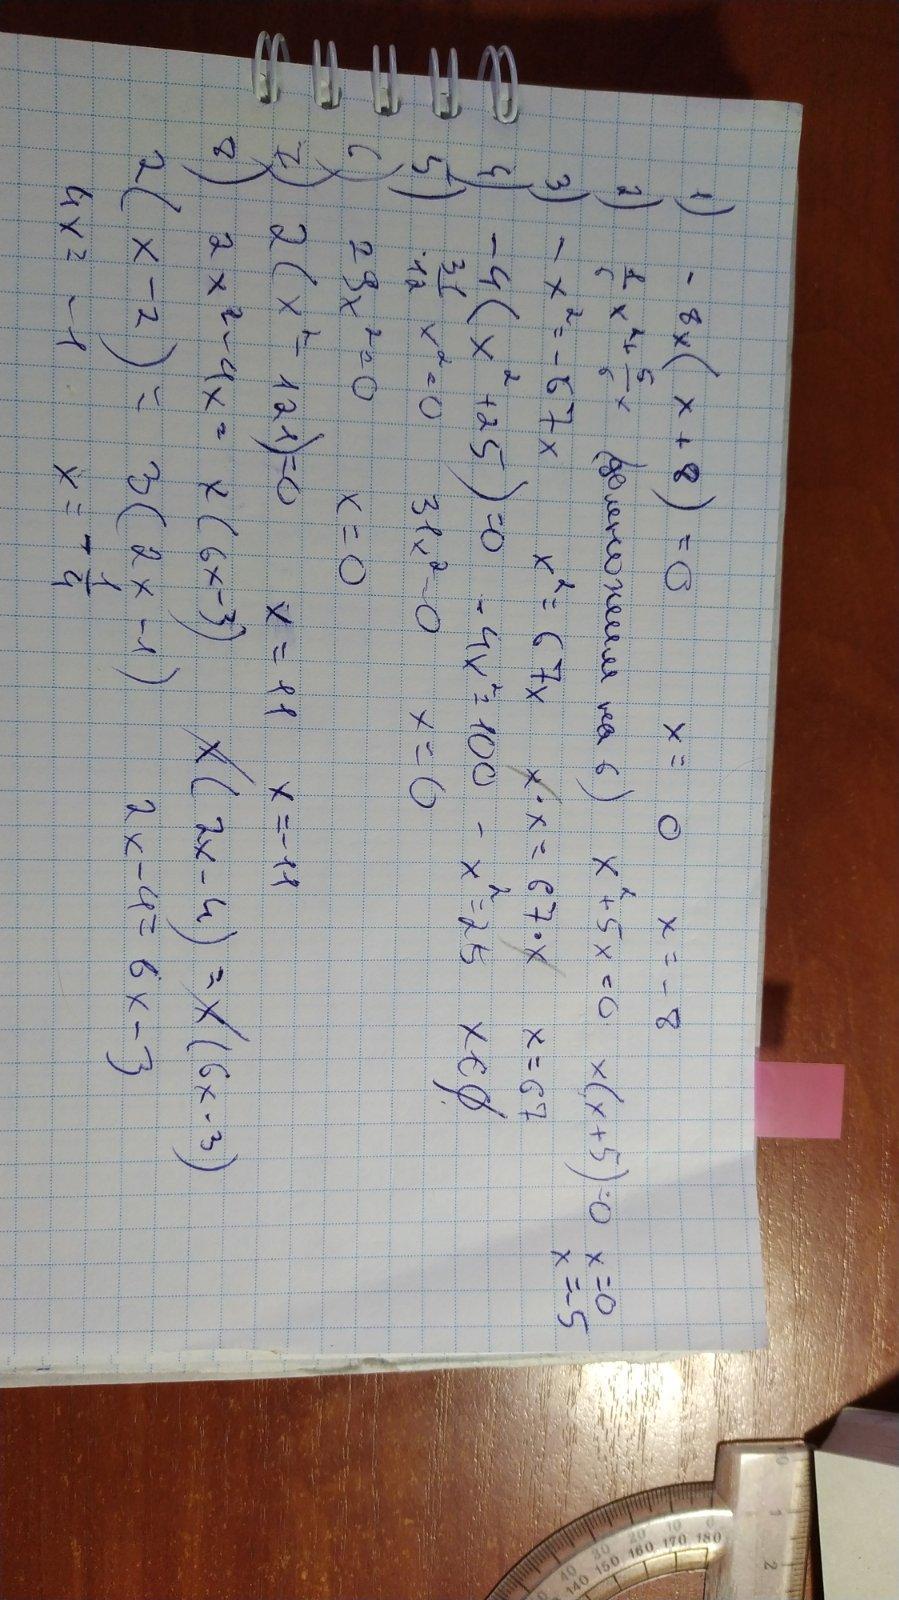 1) - 8x(x+8) = 0 x = 0 x = - 8
2) 1/6 x² + 5/6 x (домножим на 6) x²+5x=0 x(x+5)=0 x=0
x=-5
3) - x² = - 67x x² = 67x x·x = 67·x x=67
4) -4(x²+25)=0 -4x²=100 - x²=25 x∈∅
5) 31/42 x²=0 31x²=0 x=0
6) 29x²=0 x=0
7) 2(x²-121)=0 x=11 x=-11
8) 2x²-4x= x(6x-3) x(2x-4)=x(6x-3)
2(x-2) = 3(2x-1) 2x-4=6x-3
4x= -1 x= -1/4
0 1 2
0 10 20 30 40
180 170 160 150 140